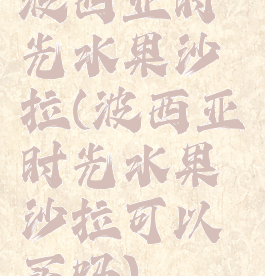 波西亚时
光水果沙
拉(波西亚
时光水果
沙拉可以